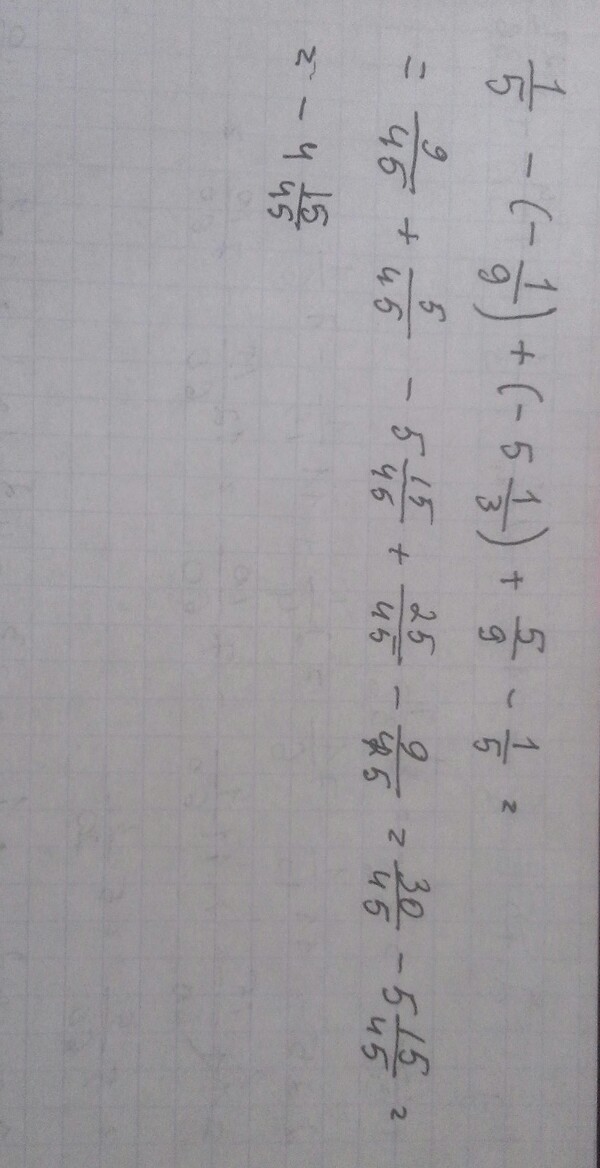 1/5 - (-1/9) + (-5 1/3) + 5/9 - 1/5 =
= 9/45 + 5/45 - 5 15/45 + 25/45 - 9/45 = 30/45 - 5 15/45 =
= - 4 15/45